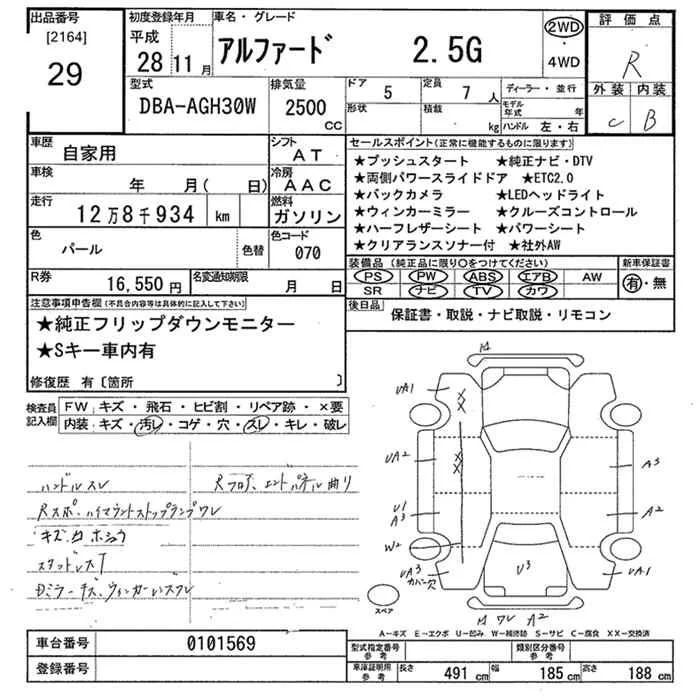 出品番号
[2164]
29
初度登録年月
平成
28年11月
車名・グレード
アルファード 2.5G
2WD
・
4WD
評価点
R
外装 内装
C B
型式
DBA-AGH30W
排気量
2500 CC
ドア 5
定員 7人
形状
積載 kg
ディーラー・並行
モデル年式 年
ハンドル 左・右
車歴
自家用
シフト
AT
車検
年 月( 日)
冷房
AAC
走行
12万8千934 km
燃料
ガソリン
色
パール
色替
色コード
070
R券
16,550円
名変通知期限
月 日
セールスポイント(正常に機能するものに限ります)
★プッシュスタート ★純正ナビ・DTV
★両側パワースライドドア ★ETC2.0
★バックカメラ ★LEDヘッドライト
★ウィンカーミラー ★クルーズコントロール
★ハーフレザーシート ★パワーシート
★クリアランスソナー付 ★社外AW
装備品(純正品に限り○をつけてください)
PS PW ABS エアB AW
SR ナビ TV カワ
新車保証書
有・無
後日品
保証書・取説・ナビ取説・リモコン
注意事項申告欄(不具合内容等は具体的に記入して下さい)
★純正フリップダウンモニター
★Sキー車内有
修復歴 有〔箇所 〕
検査員記入欄
FW キズ・飛石・ヒビ割・リペア跡・×要
内装 キズ・汚レ・コゲ・穴・スレ・キレ・破レ
ハンドルスレ
Rフロア、エンドパネル曲リ
Rスポ・ハイマウントストップランプワレ
スタッドレスT
UA1
UA2
U1
A3
W2
UA3
カバー穴
XX
XX
A3
A2
UA1
U3
ワレ A2
スペア
A-キズ E-エクボ U-凹み W-補修跡 S-サビ C-腐食 XX-交換済
車台番号 0101569
登録番号
型式指定番号 参考
類別区分番号 参考
車庫証明用 参考
長さ 491cm 幅 185cm 高さ 188cm